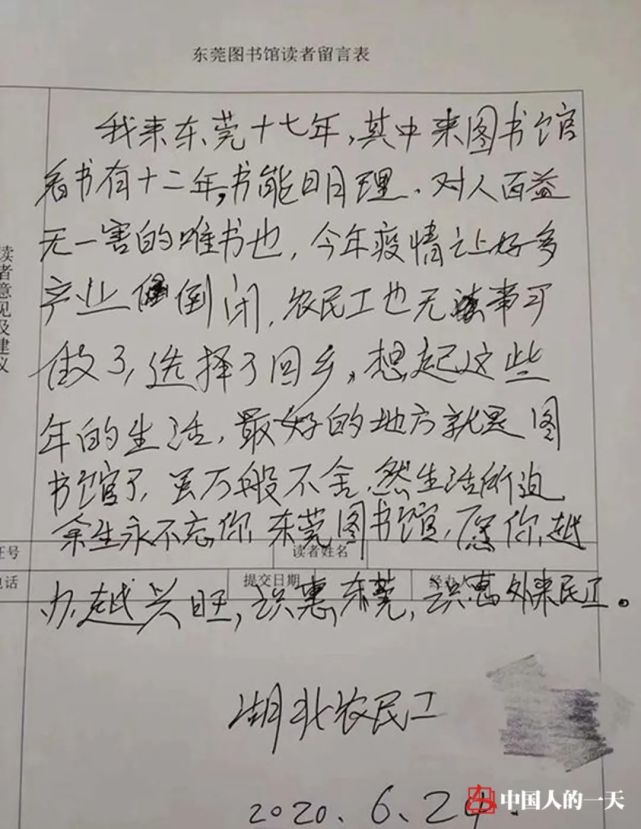 东莞图书馆读者留言表
我来东莞十七年,其中来图书馆
看书有十二年,书能明理、对人百益
无一害的唯书也,今年疫情让好多
产业倒闭,农民工也无事可
做了,选择了回乡。想起这些
年的生活,最好的地方就是图
书馆了,虽万般不舍,然生活所迫
余生永不忘你,东莞图书馆,愿你越
办越兴旺,识惠东莞,识惠外来民工。
读者意见及建议
证号
读者姓名
电话
提交日期
经办人
湖北农民工
2020.6.24.
中国人的一天